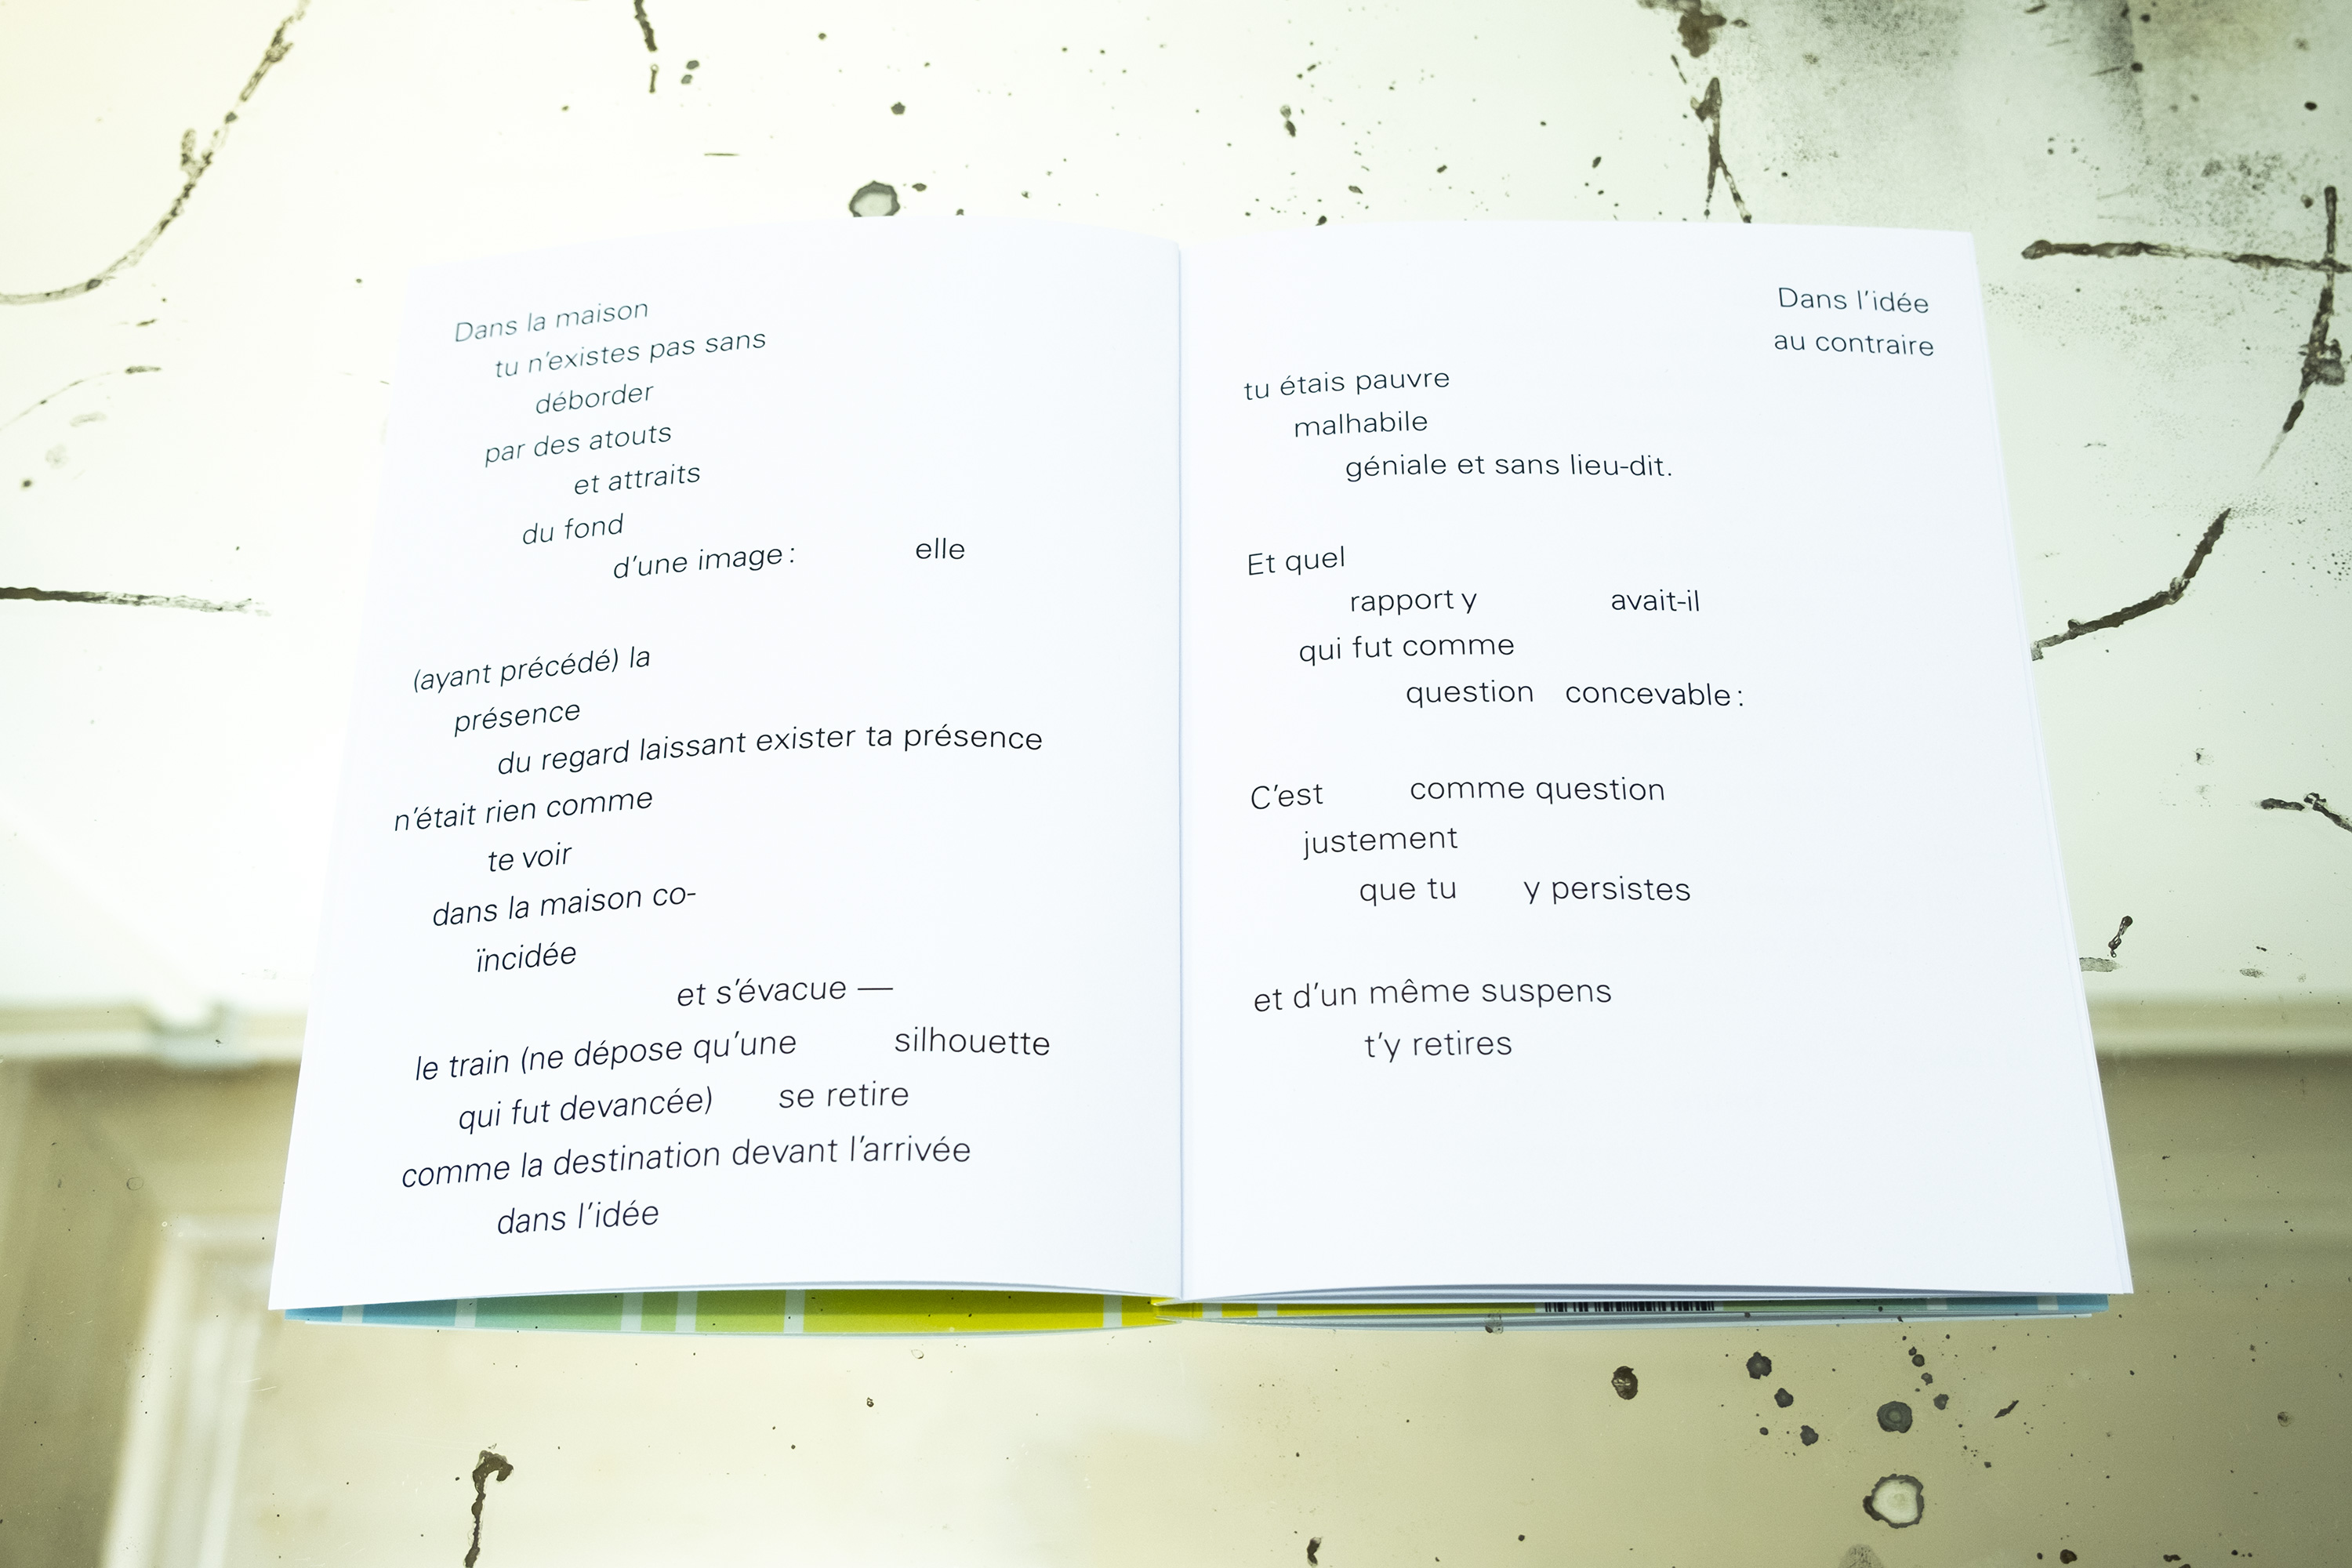 Dans la maison
tu n'existes pas sans
déborder
par des atouts
et attraits
du fond
d'une image : elle
(ayant précédé) la
présence
du regard laissant exister ta présence
n'était rien comme
te voir
dans la maison co-
ïncidée
et s'évacue —
le train (ne dépose qu'une silhouette
qui fut devancée) se retire
comme la destination devant l'arrivée
dans l'idée
Dans l'idée
au contraire
tu étais pauvre
malhabile
géniale et sans lieu-dit.
Et quel
rapport y avait-il
qui fut comme
question concevable :
C'est comme question
justement
que tu y persistes
et d'un même suspens
t'y retires